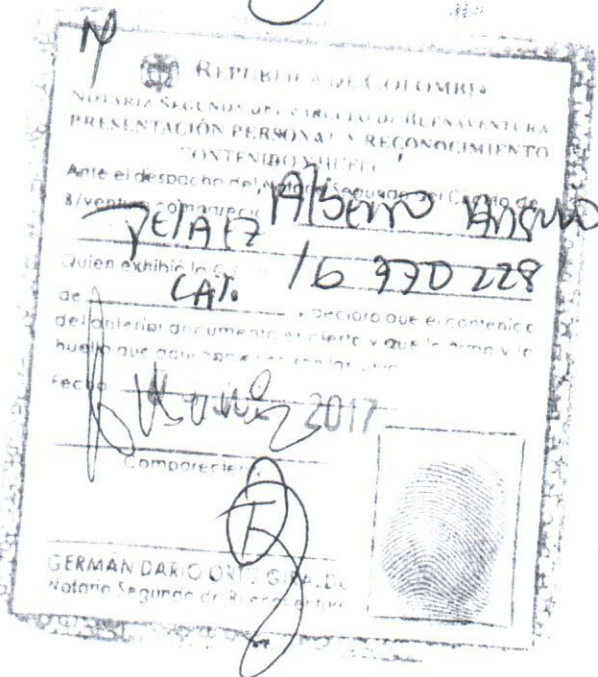 REPUBLICA DE COLOMBIA
NOTARIA SEGUNDA DEL CIRCULO DE BUENAVENTURA
PRESENTACIÓN PERSONAL Y RECONOCIMIENTO
CONTENIDO Y HUELLA
Ante el despacho del Notario Segundo del Circulo de
B/ventura compareció Alberto
PELAEZ
Quien exhibió la C. 16 970 228
CALI.
de y declaró que el contenido
del anterior documento es cierto y que la firma y la
huella que
Fecha 2017
Compareciente
GERMAN DARIO ORTIZ GIRALDO
Notario Segundo de Buenaventura